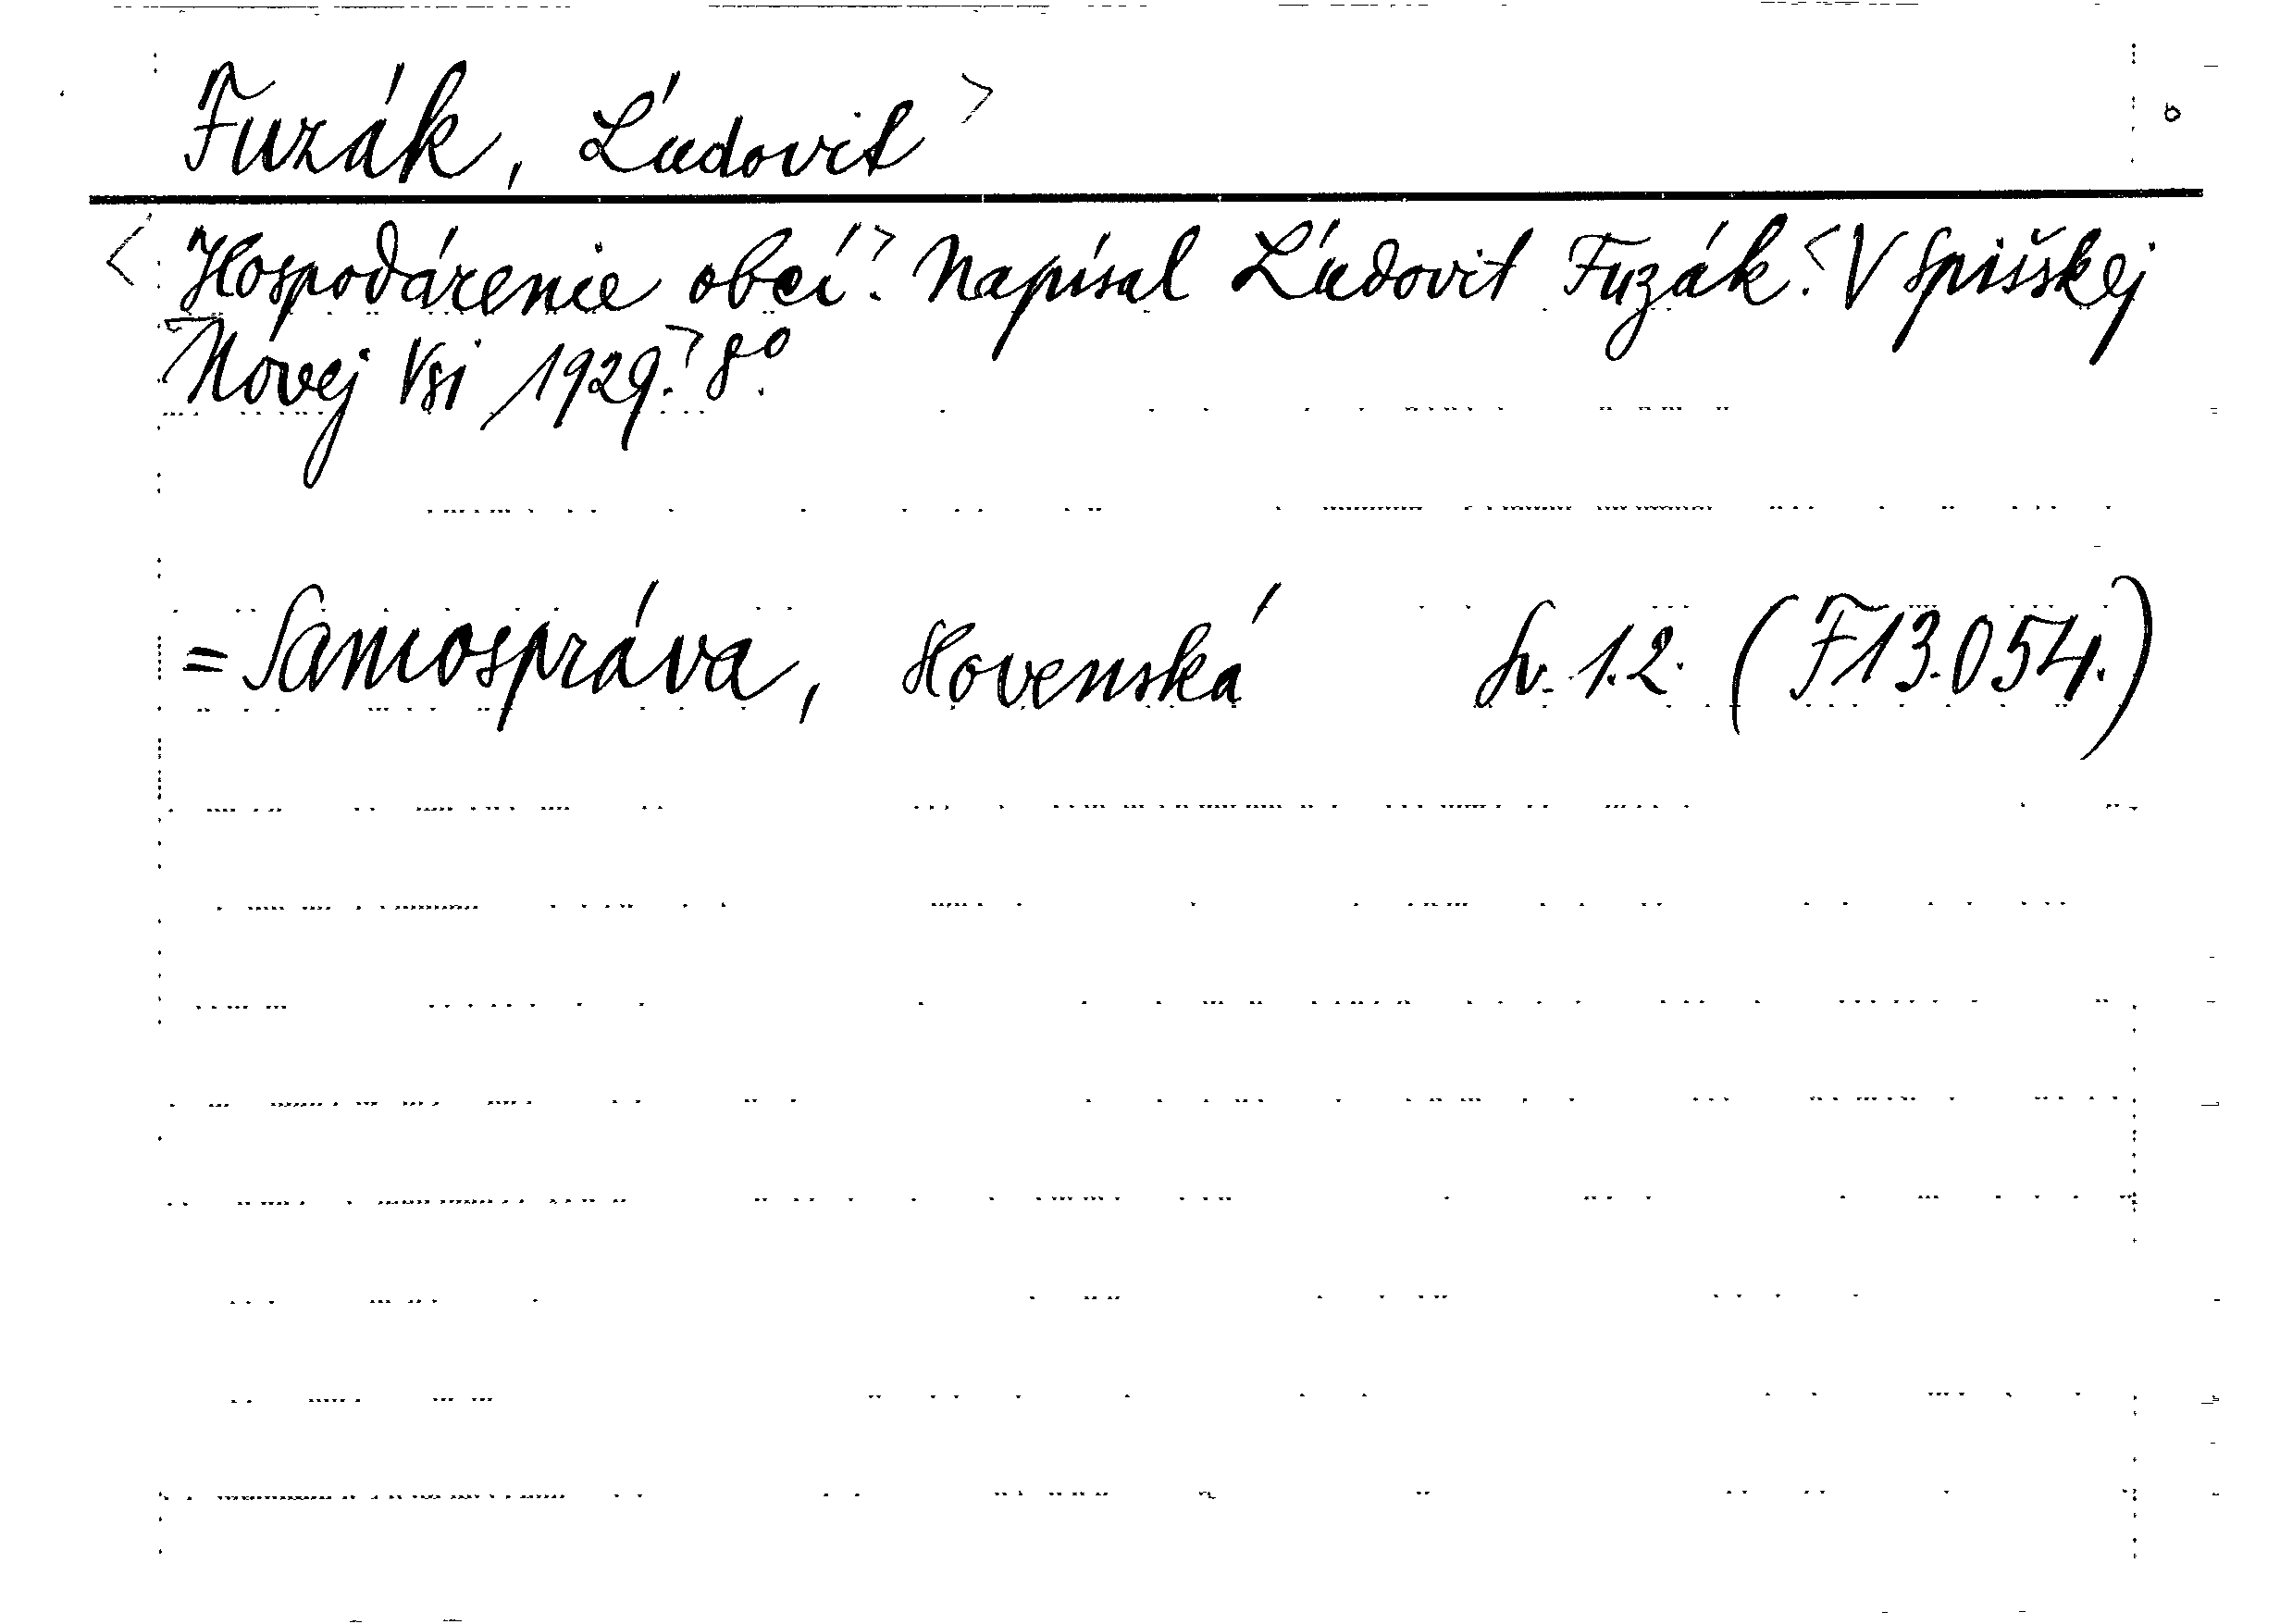 Fuzák, Ľudovit>
<Hospodárenie obcí>. Napísal Ľudovit Fuzák. <V Spišskej
Novej Vsi 1929.> 8°.
= Samospráva, slovenská Sv. 1.2. (F13.054.)